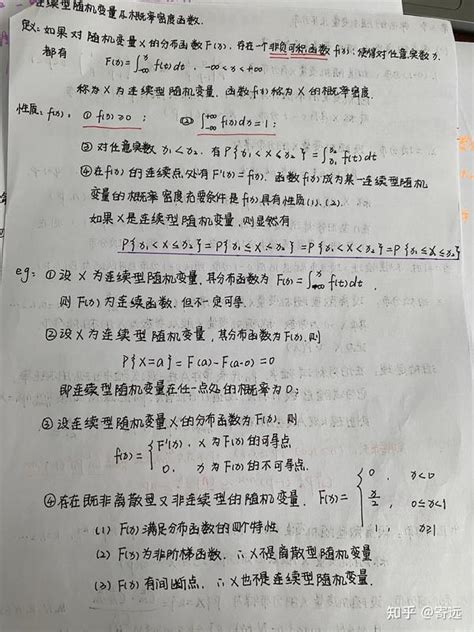 连续型随机变量及概率密度函数.
定义: 如果对随机变量X的分布函数F(x), 存在一个非负可积函数f(x), 使得对任意实数x,
都有 F(x)=∫_{-∞}^{x} f(t)dt, -∞<x<+∞
称为X为连续型随机变量. 函数f(x)称为X的概率密度
性质: f(x), ① f(x)≥0; ② ∫_{-∞}^{+∞} f(x)dx=1;
③ 对任意实数x₁<x₂, 有P{x₁<X≤x₂}=∫_{x₁}^{x₂} f(t)dt
④ 在f(x)的连续点处有F'(x)=f(x). 函数f(x)成为某一连续型随机
变量的概率密度充要条件是f(x)具有性质(1)、(2).
如果X是连续型随机变量, 则显然有
P{x₁<X≤x₂}=P{x₁≤X<x₂}=P{x₁<X<x₂}=P{x₁≤X≤x₂}
eg: ①设X为连续型随机变量, 其分布函数为F(x)=∫_{+∞}^{x} f(t)dt,
则F(x)为连续函数. 但不一定可导.
②设X为连续型随机变量, 其分布函数为F(x), 则
P{X=a}=F(a)-F(a-0)=0
即连续型随机变量在任一点处的概率为0;
③设连续型随机变量X的分布函数为F(x), 则
f(x)={F'(x), x为F(x)的可导点
0, x为F(x)的不可导点.
④存在既非离散型又非连续型的随机变量. F(x)={0, x<0
x/2, 0≤x<1
1, x≥1
(1) F(x)满足分布函数的四个特性
(2) F(x)为非阶梯函数, ∴X不是离散型随机变量
(3) F(x)有间断点, ∴X也不是连续型随机变量.
知乎 @寄远